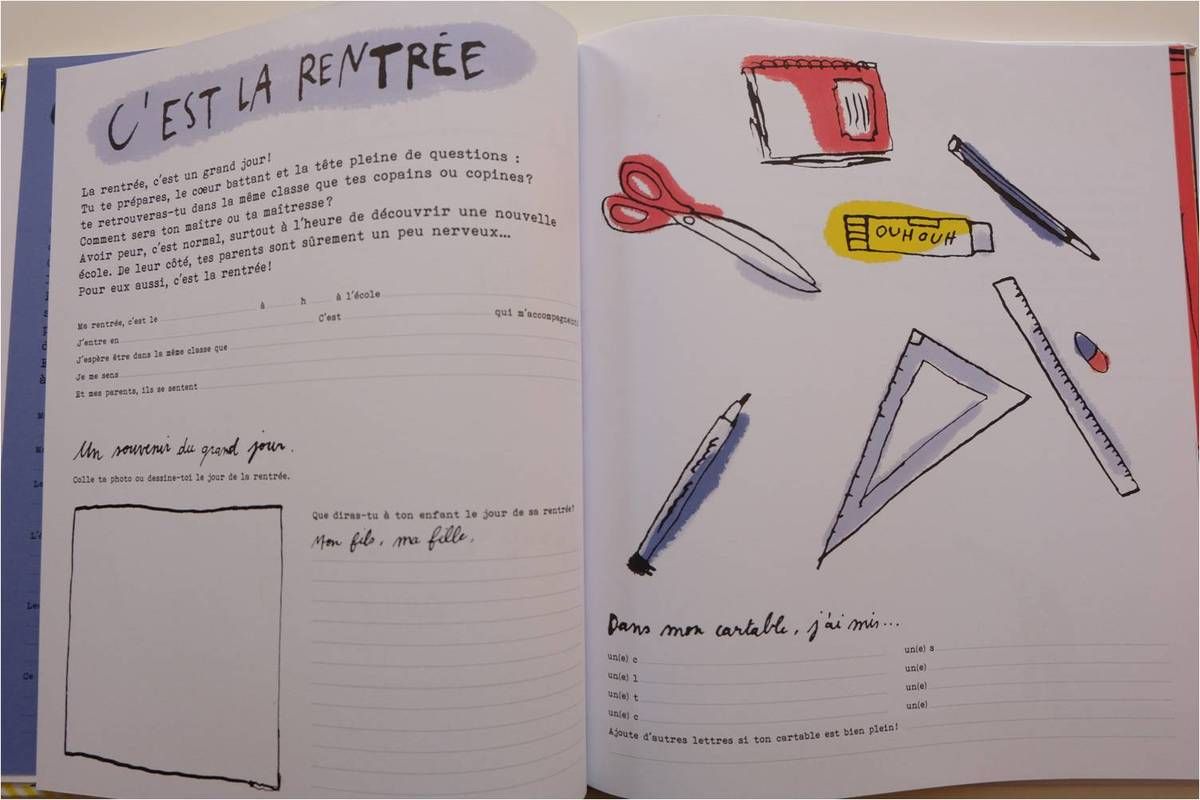 C'EST LA RENTRÉE
La rentrée, c'est un grand jour!
Tu te prépares, le cœur battant et la tête pleine de questions :
te retrouveras-tu dans la même classe que tes copains ou copines?
Comment sera ton maître ou ta maîtresse?
Avoir peur, c'est normal, surtout à l'heure de découvrir une nouvelle
école. De leur côté, tes parents sont sûrement un peu nerveux...
Pour eux aussi, c'est la rentrée!
Ma rentrée, c'est le à h à l'école
J'entre en C'est qui m'accompagne
J'espère être dans la même classe que
Je me sens
Et mes parents, ils se sentent
Un souvenir du grand jour.
Colle ta photo ou dessine-toi le jour de la rentrée.
Que diras-tu à ton enfant le jour de sa rentrée?
Mon fils, ma fille,
OUHOUH
Dans mon cartable, j'ai mis...
un(e) c
un(e) l
un(e) t
un(e) c
un(e) s
un(e)
un(e)
un(e)
Ajoute d'autres lettres si ton cartable est bien plein!